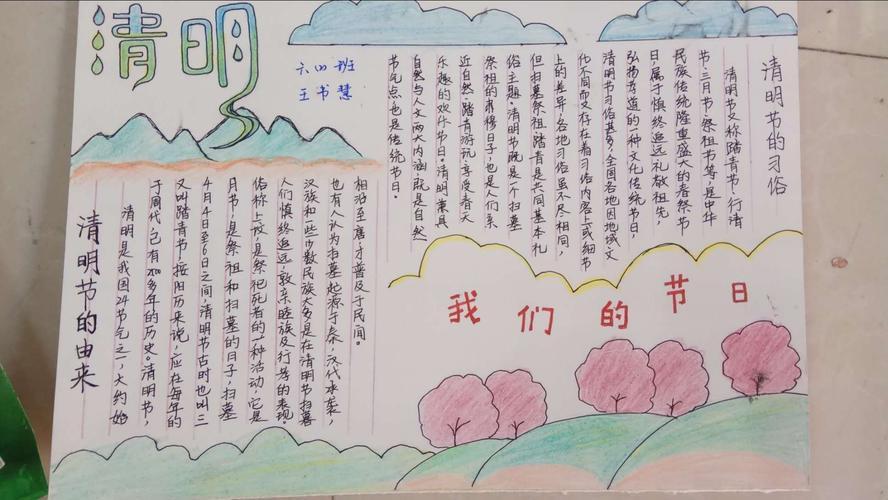 清明
六(4)班
王书慧
清明节的习俗
清明节又称踏青节、行清
节、三月节、祭祖节等,是中华
民族传统隆重盛大的春祭节
日,属于慎终追远礼敬祖先,
弘扬孝道的一种文化传统节日,
清明节习俗甚多,全国各地因地域文
化不同而又存在着习俗内容上或细节
上的差异,各地习俗虽不尽相同,
但扫墓祭祖踏青是共同基本礼
俗主题。清明节既是一个扫墓
祭祖的肃穆日子,也是人们亲
近自然、踏青游玩、享受春天
乐趣的欢乐节日。清明兼具
自然与人文两大内涵,既是自然
节气点也是传统节日。
清明节的由来
清明是我国24节气之一,大约始
于周代,已有2500多年的历史。清明节,
又叫踏青节,按阳历来说,应在每年的
4月4日至6日之间,清明节古时也叫三
月节,是祭祖和扫墓的日子,扫墓
俗称上坟,是祭祀死者的一种活动,它是
人们慎终追远,敦亲睦族及行孝的表现。
汉族和一些少数民族大多是在清明节扫墓
也有人认为扫墓起源于秦,汉代承袭,
相沿至唐,才普及于民间。
我们的节日